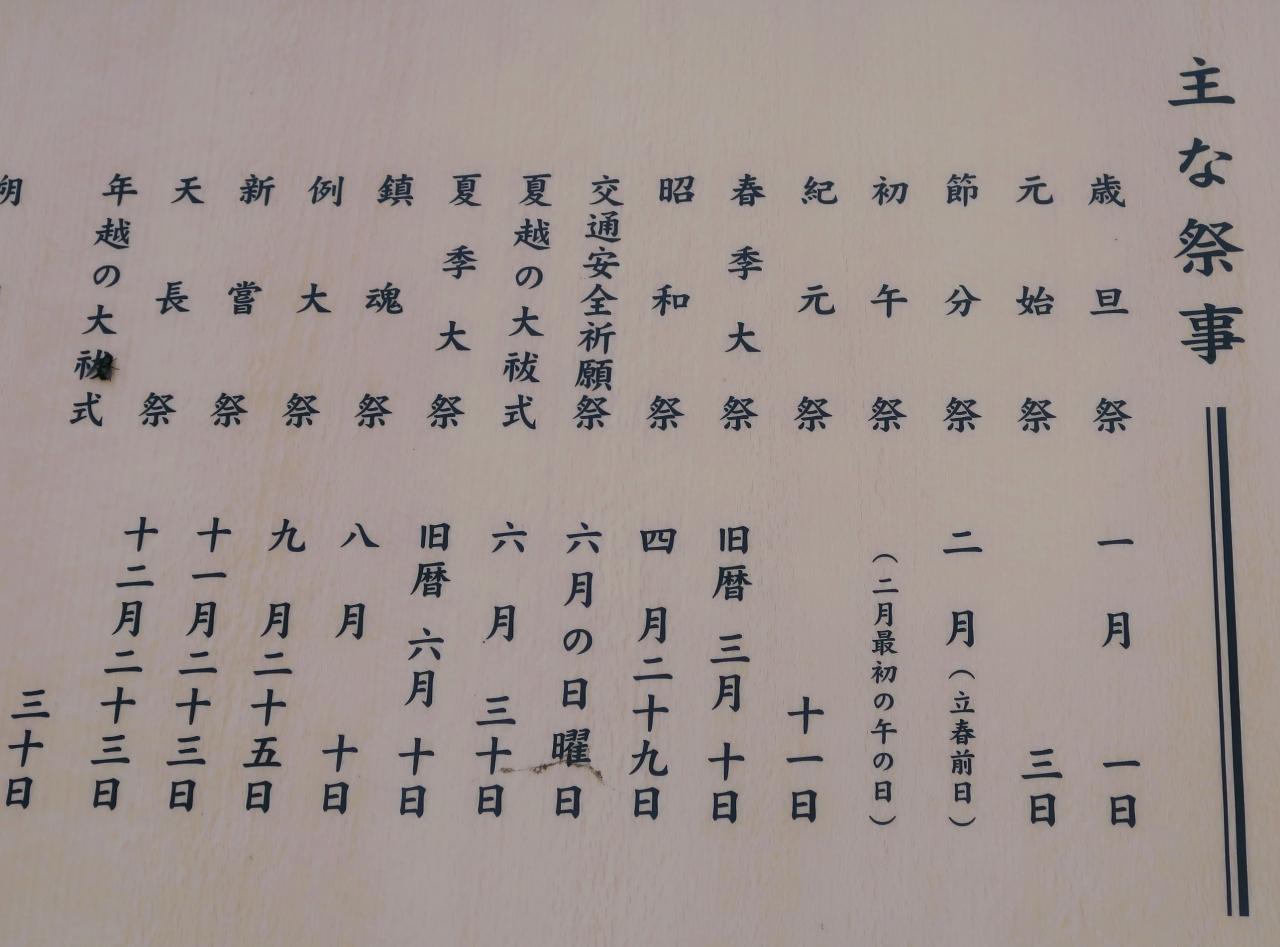 主な祭事
歳旦祭 一月一日
元始祭 三日
節分祭 二月（立春前日）
初午祭 （二月最初の午の日）
紀元祭 十一日
春季大祭 旧暦三月十日
昭和祭 四月二十九日
交通安全祈願祭 六月の日曜日
夏越の大祓式 六月三十日
夏季大祭 旧暦六月十日
鎮魂祭 八月十日
例大祭 九月二十五日
新嘗祭 十一月二十三日
天長祭 十二月二十三日
年越の大祓式 三十日